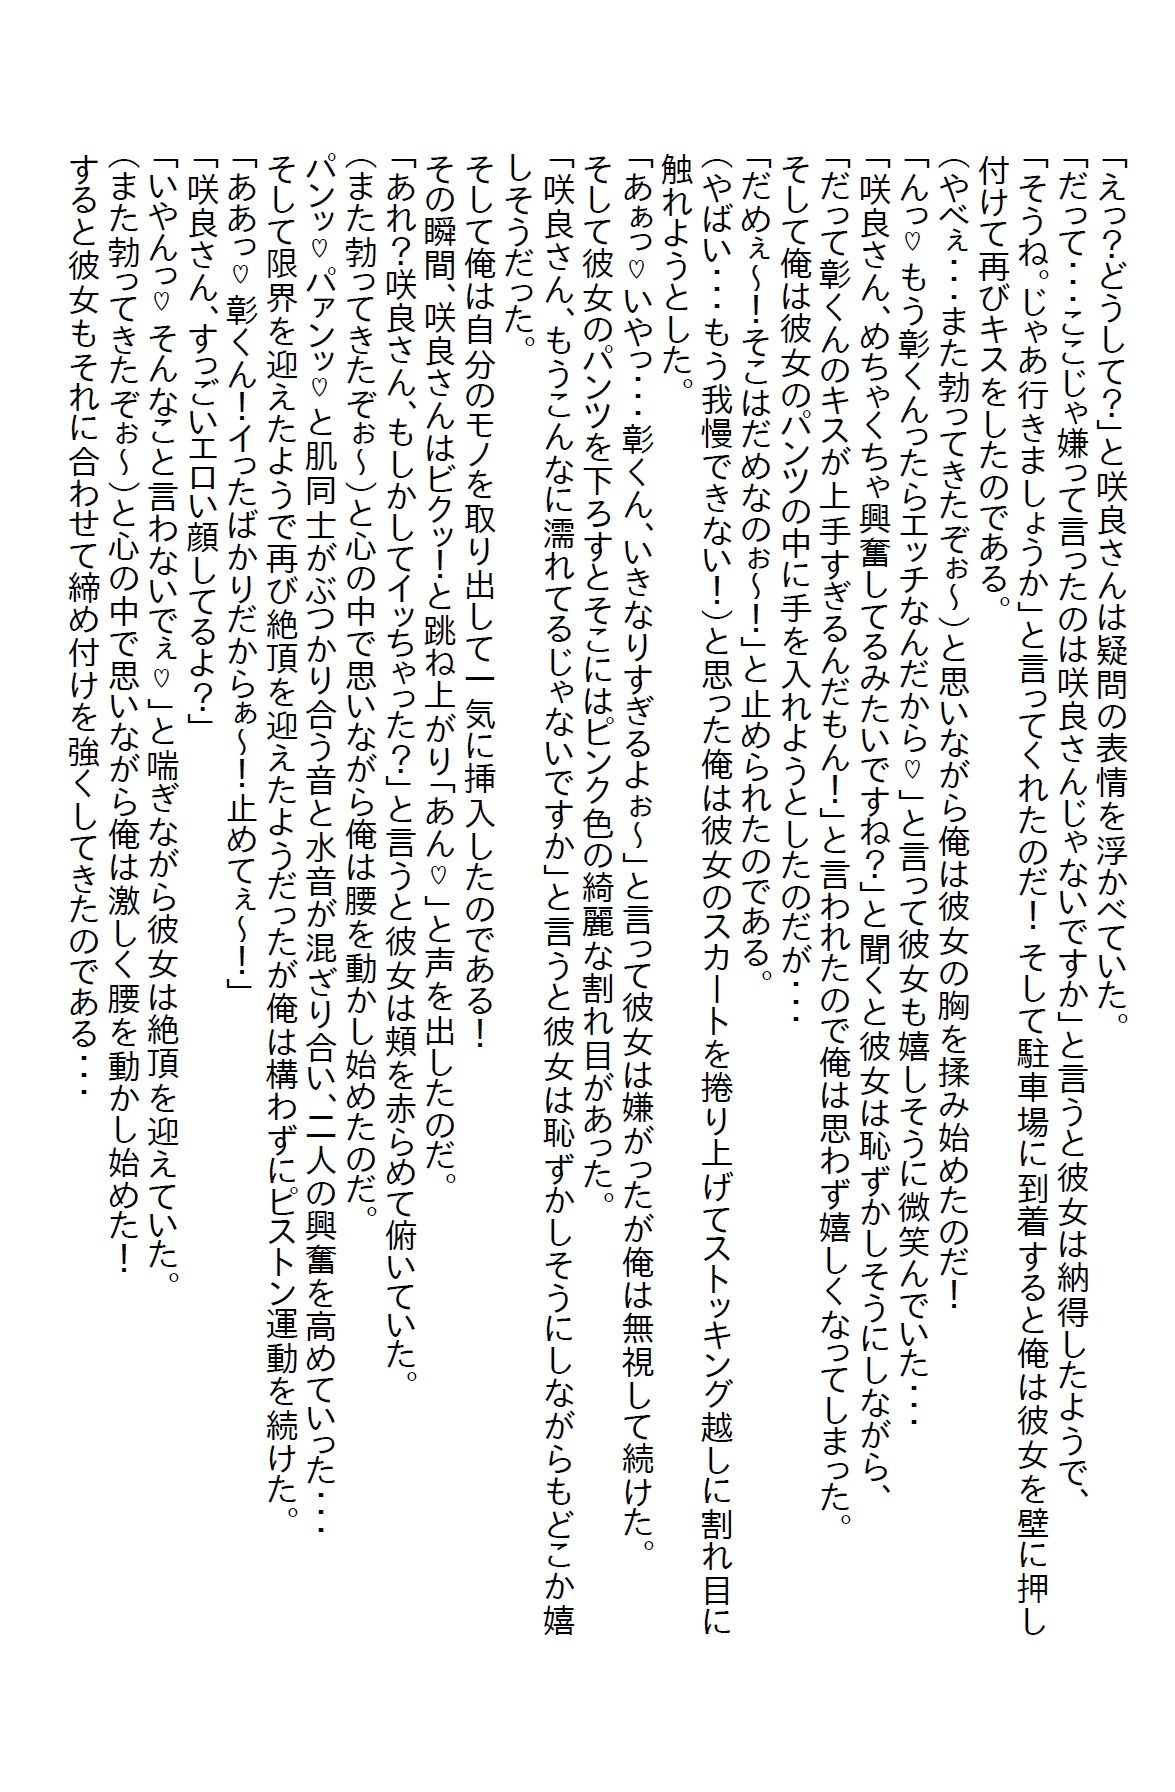 「えっ？どうして？」と咲良さんは疑問の表情を浮かべていた。
「だって・・・ここじゃ嫌って言ったのは咲良さんじゃないですか」と言うと彼女は納得したようで、
「そうね。じゃあ行きましょうか」と言ってくれたのだ！そして駐車場に到着すると俺は彼女を壁に押し
付けて再びキスをしたのである。
（やべぇ・・・また勃ってきたぞぉ～）と思いながら俺は彼女の胸を揉み始めたのだ！
「んっ♡もう彰くんったらエッチなんだから♡」と言って彼女も嬉しそうに微笑んでいた・・・
「咲良さん、めちゃくちゃ興奮してるみたいですね？」と聞くと彼女は恥ずかしそうにしながら、
「だって彰くんのキスが上手すぎるんだもん！」と言われたので俺は思わず嬉しくなってしまった。
そして俺は彼女のパンツの中に手を入れようとしたのだが・・・
「だめぇ～！そこはだめなのぉ～！」と止められたのである。
（やばい・・・もう我慢できない！）と思った俺は彼女のスカートを捲り上げてストッキング越しに割れ目に
触れようとした。
「あぁっ♡いやっ・・・彰くん、いきなりすぎるよぉ～」と言って彼女は嫌がったが俺は無視して続けた。
そして彼女のパンツを下ろすとそこにはピンク色の綺麗な割れ目があった。
「咲良さん、もうこんなに濡れてるじゃないですか」と言うと彼女は恥ずかしそうにしながらもどこか嬉
しそうだった。
そして俺は自分のモノを取り出して一気に挿入したのである！
その瞬間、咲良さんはビクッ！と跳ね上がり「あん♡」と声を出したのだ。
「あれ？咲良さん、もしかしてイッちゃった？」と言うと彼女は頬を赤らめて俯いていた。
（また勃ってきたぞぉ～）と心の中で思いながら俺は腰を動かし始めたのだ。
パンッ♡パァンッ♡と肌同士がぶつかり合う音と水音が混ざり合い、二人の興奮を高めていった・・・
そして限界を迎えたようで再び絶頂を迎えたようだったが俺は構わずにピストン運動を続けた。
「ああっ♡彰くん！イったばかりだからぁ～！止めてぇ～！」
「咲良さん、すっごいエロい顔してるよ？」
「いやんっ♡そんなこと言わないでぇ♡」と喘ぎながら彼女は絶頂を迎えていた。
（また勃ってきたぞぉ～）と心の中で思いながら俺は激しく腰を動かし始めた！
すると彼女もそれに合わせて締め付けを強くしてきたのである・・・